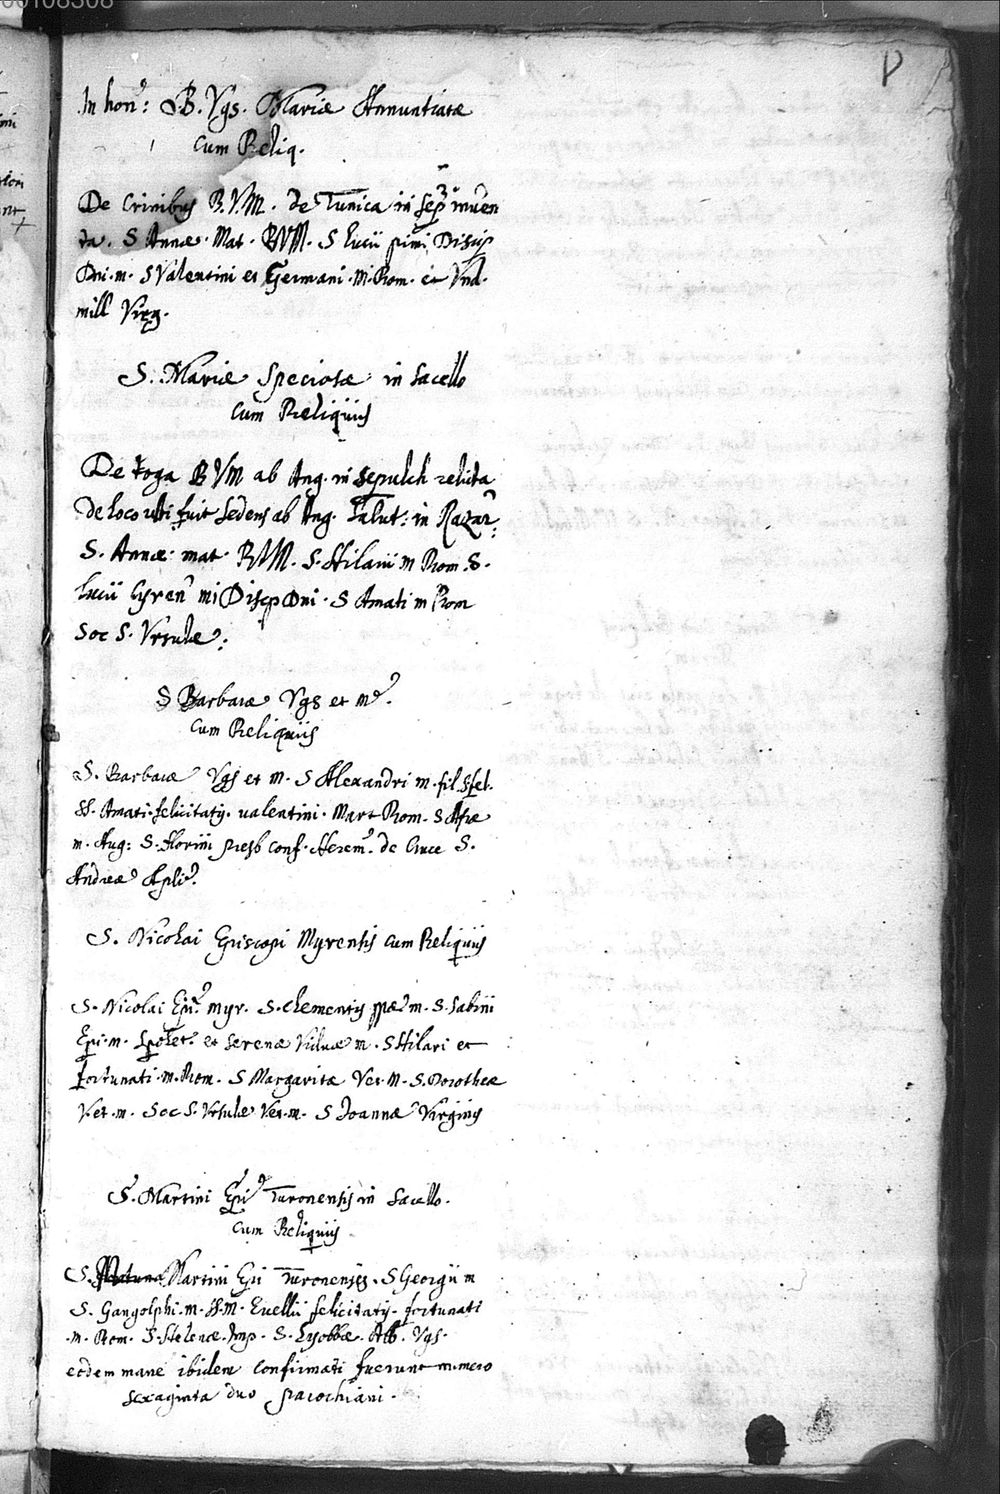 00108308
In hon: B. Vgs. Mariæ Annuntiatæ
Cum Reliq.
De Crinibus B.V.M. de Tunica in Sep inuen
ta. S Annæ. Mat. BVM. S Lucii primi Discip
Dni. m. S Valentini et Germani. M. Rom. et Vnd.
mill Virg.
S. Mariæ Speciosæ in Sacello
Cum Reliquiis
De toga BVM ab Ang. in sepulch relicta
de loco ubi fuit Sedens ab Ang. Salut: in Nazar:
S. Annæ mat. BVM. S. Hilarii m Rom. S.
Lucii Cyren mi Discp Dni. S Amati m Rom
Soc S. Vrsulæ.
S Barbaræ Vgs et m.
Cum Reliquiis
S. Barbaræ Vgs et m. S Alexandri m. fil. S. fel.
SS. Amati. felicitatis. ualentini. Mart Rom. S Afræ
m. Aug: S. Florini presb conf. Herem. de Cruce S.
Andreæ Apli.
S. Nicolai Episcopi Myrensis Cum Reliquiis
S. Nicolai Epi. Myr. S. Clementis ppæ m. S. Sabini
Epi. m. Spolet. et Serenæ Viduæ m. S Hilari et
fortunati. m. Rom. S Margaritæ Vet. M. S. Dorotheæ
V. et. m. Soc S. Vrsulæ Vet. m. S Joannæ Virginis
S. Martini Epi Turonensis in Sacello.
Cum Reliquiis
S. Martini Epi Turonensis. S Georgii m
S. Gangolphi. m. SS. M. Euellii felicitatis. fortunati
m. Rom. S. Helenæ. Imp. S. Lyobbæ. Abb. Vgs.
eodem mane ibidem Confirmati fuerunt numero
sexaginta duo parochiani.